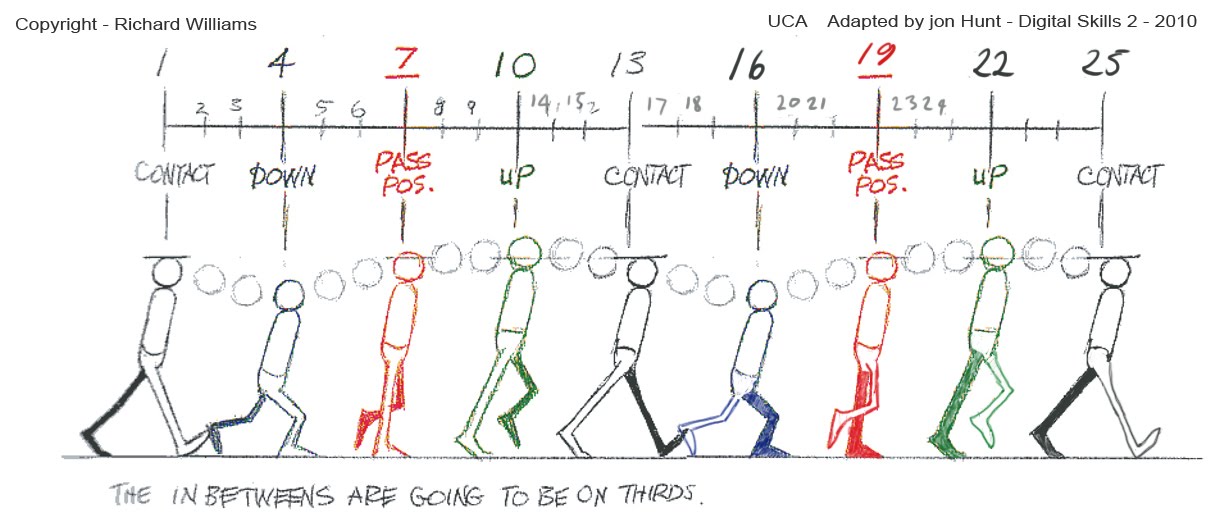 Copyright - Richard Williams
UCA Adapted by jon Hunt - Digital Skills 2 - 2010
1 4 7 10 13 16 19 22 25
2 3 5 6 8 9 14, 15 2 17 18 20 21 23 24
CONTACT DOWN PASS POS. UP CONTACT DOWN PASS POS. UP CONTACT
THE INBETWEENS ARE GOING TO BE ON THIRDS.